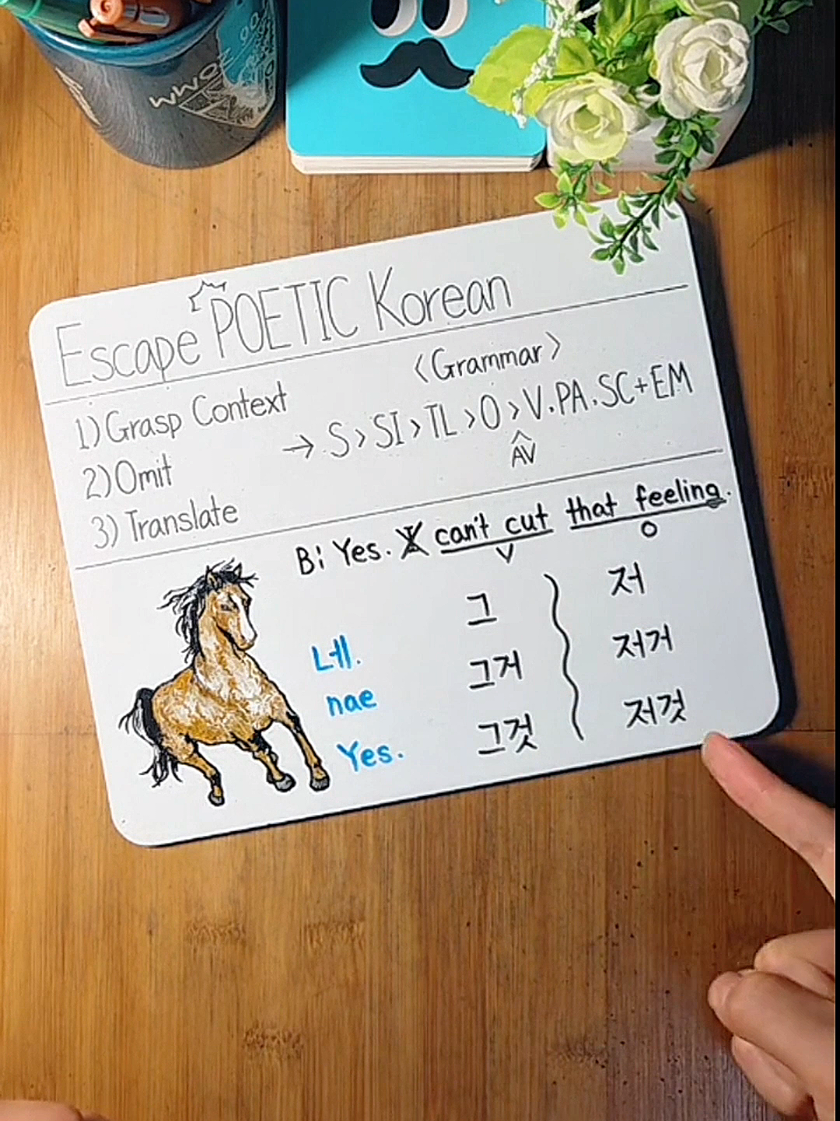 Escape POETIC Korean
1) Grasp Context
2) Omit
3) Translate
<Grammar>
→ S > SI > TL > O > V.PA.SC+EM
AV
B: Yes. I can't cut that feeling.
V
O
네.
nae
Yes.
그
그거
그것
저
저거
저것